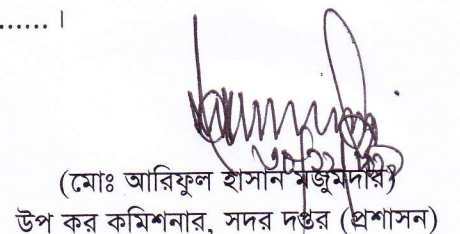 ...... ।
(মোঃ আরিফুল হাসান মজুমদার)
উপ কর কমিশনার, সদর দপ্তর (প্রশাসন)